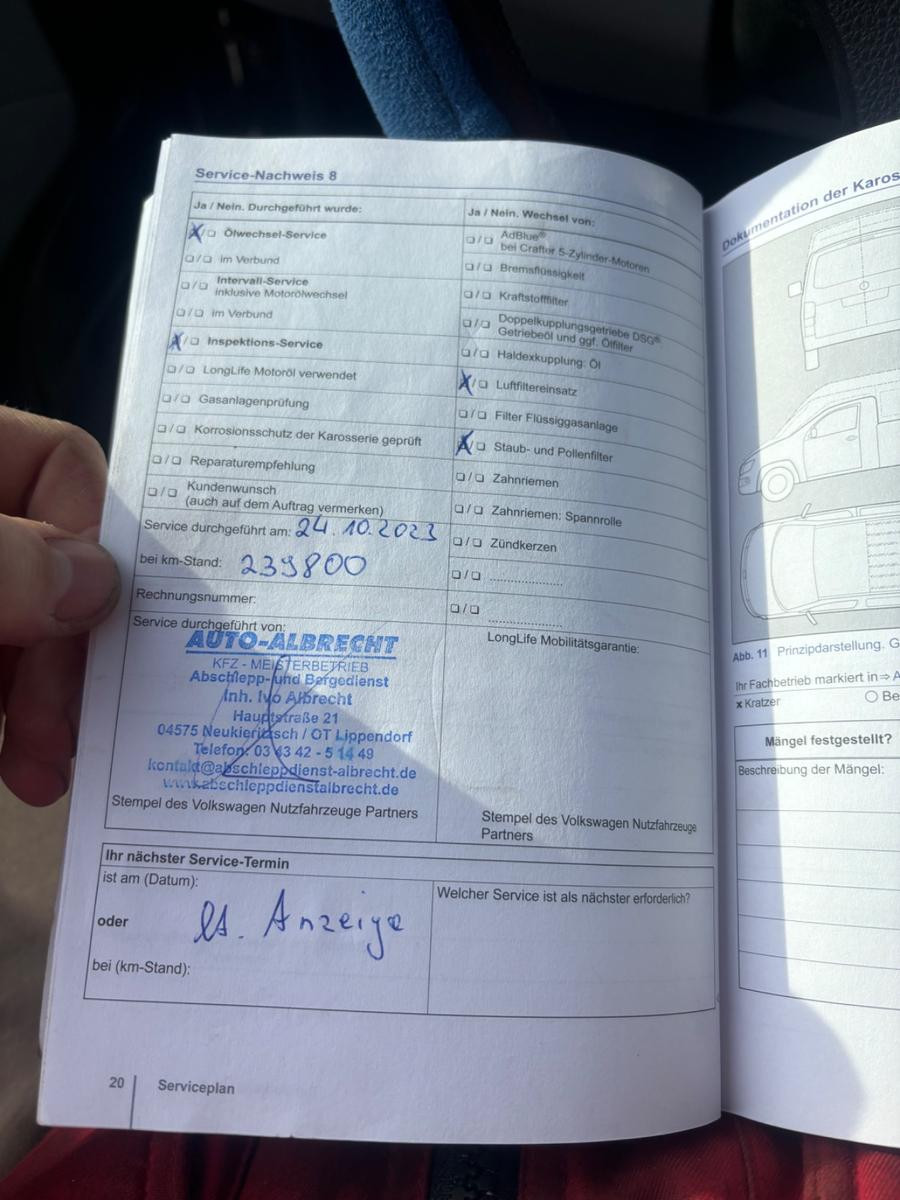 Service-Nachweis 8
Ja / Nein. Durchgeführt wurde:
X/❏ Ölwechsel-Service
❏/❏ im Verbund
❏/❏ Intervall-Service
inklusive Motorölwechsel
❏/❏ im Verbund
X/❏ Inspektions-Service
❏/❏ LongLife Motoröl verwendet
❏/❏ Gasanlagenprüfung
❏/❏ Korrosionsschutz der Karosserie geprüft
❏/❏ Reparaturempfehlung
❏/❏ Kundenwunsch
(auch auf dem Auftrag vermerken)
Service durchgeführt am: 24.10.2023
bei km-Stand: 239800
Rechnungsnummer:
Service durchgeführt von:
AUTO-ALBRECHT
KFZ - MEISTERBETRIEB
Abschlepp- und Bergedienst
Inh. Ivo Albrecht
Hauptstraße 21
04575 Neukieritzsch / OT Lippendorf
Telefon: 03 43 42 - 5 14 49
kontakt@abschleppdienst-albrecht.de
www.abschleppdienstalbrecht.de
Stempel des Volkswagen Nutzfahrzeuge Partners
Ja / Nein. Wechsel von:
❏/❏ AdBlue®
bei Crafter 5-Zylinder-Motoren
❏/❏ Bremsflüssigkeit
❏/❏ Kraftstofffilter
❏/❏ Doppelkupplungsgetriebe DSG®:
Getriebeöl und ggf. Ölfilter
❏/❏ Haldexkupplung: Öl
X/❏ Luftfiltereinsatz
❏/❏ Filter Flüssiggasanlage
X/❏ Staub- und Pollenfilter
❏/❏ Zahnriemen
❏/❏ Zahnriemen: Spannrolle
❏/❏ Zündkerzen
❏/❏ ......................
❏/❏ ......................
LongLife Mobilitätsgarantie:
Stempel des Volkswagen Nutzfahrzeuge
Partners
Ihr nächster Service-Termin
ist am (Datum):
oder lt. Anzeige
bei (km-Stand):
Welcher Service ist als nächster erforderlich?
20 Serviceplan
Dokumentation der Karos
Abb. 11 Prinzipdarstellung. G
Ihr Fachbetrieb markiert in ⇒ A
x Kratzer ○ Be
Mängel festgestellt?
Beschreibung der Mängel: